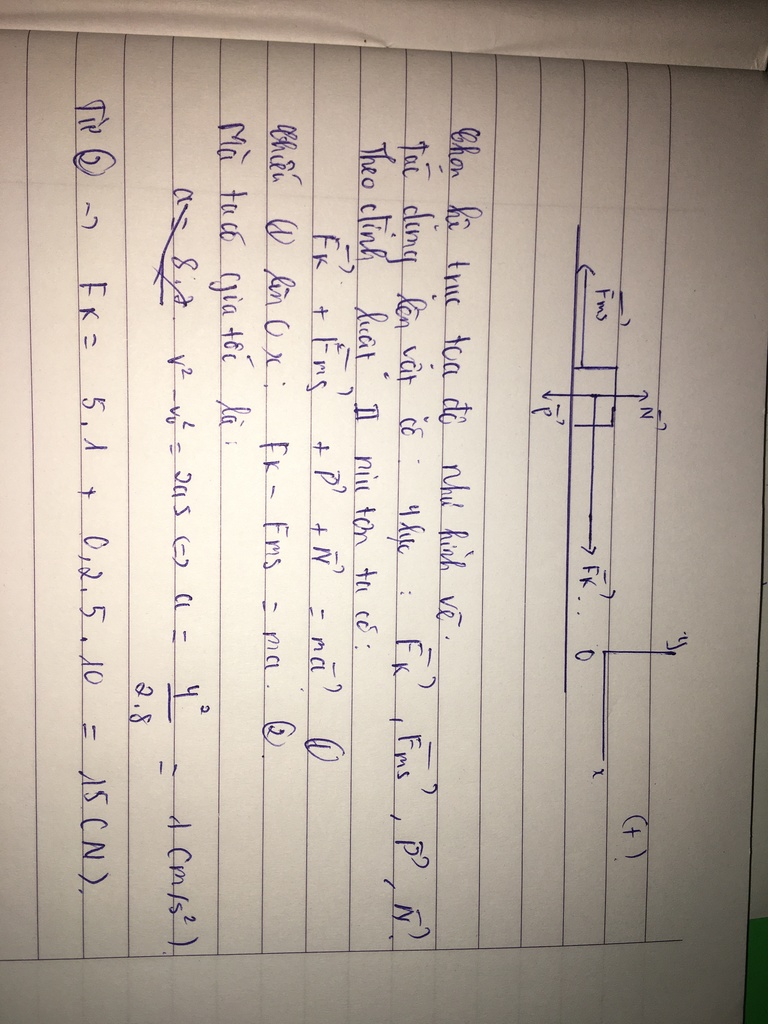 y
(+)
N⃗
F⃗ms
F⃗K
O
x
P⃗
Chọn hệ trục tọa độ như hình vẽ.
Tác dụng lên vật có: 4 lực: F⃗K, F⃗ms, P⃗, N⃗
Theo định luật II niu tơn ta có:
F⃗K + F⃗ms + P⃗ + N⃗ = ma⃗ (1)
Chiếu (1) lên Ox: FK - Fms = ma. (2)
Mà ta có gia tốc là:
v² - v₀² = 2as => a = 4²/2.8 = 1 (m/s²)
Từ (2) -> FK = 5.1 + 0,2.5.10 = 15(N).